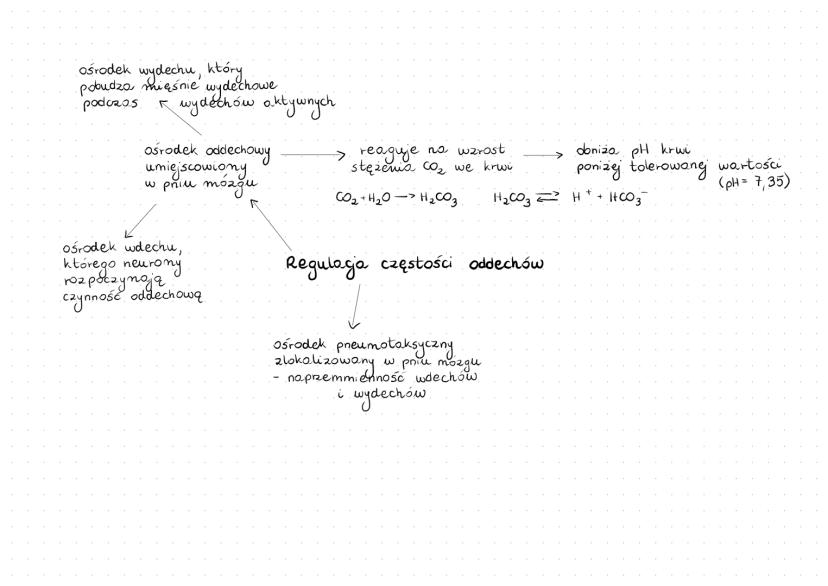 ośrodek wydechu, który
pobudza mięśnie wydechowe
podczas wydechów aktywnych
ośrodek oddechowy
umiejscowiony
w pniu mózgu
reaguje na wzrost
stężenia CO₂ we krwi
obniża pH krwi
poniżej tolerowanej wartości
(pH = 7,35)
CO₂ + H₂O → H₂CO₃
H₂CO₃ ⇌ H⁺ + HCO₃⁻
ośrodek wdechu,
którego neurony
rozpoczynają
czynność oddechową
Regulacja częstości oddechów
ośrodek pneumotaksyczny
zlokalizowany w pniu mózgu
- naprzemmienność wdechów
i wydechów